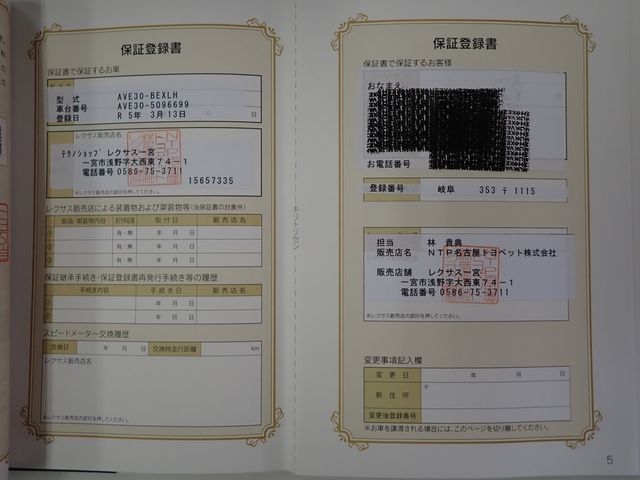 保証登録書
保証書で保証するお車
型 式 AVE30-BEXLH
車台番号 AVE30-5096699
登録日 R 5年 3月13日
日
レクサス販売店名
テクノショップ レクサス一宮
一宮市浅野字大西東74-1
電話番号 0586-75-3711
15657335
※レクサス販売店の認印を押してください。
レクサス販売店による装着物および架装物等(当保証書の対象外)
部品・架装物内容 取付日 販売店名
① 有・無 年 月 日
② 有・無 年 月 日
③ 有・無 年 月 日
保証継承手続き・保証登録書再発行手続き等の履歴
手続き内容 手続き日 販売店名
年 月 日
年 月 日
※レクサス販売店の認印を押してください。
スピードメーター交換履歴
交換日 年 月 日 交換時走行距離 km
レクサス販売店名
※レクサス販売店の認印を押してください。
キリトリセン
保証登録書
保証書で保証するお客様
おなまえ
お電話番号
登録番号 岐阜 353 す 1115
担当 林 貴典
販売店名 NTP名古屋トヨペット株式会社
販売店舗 レクサス一宮
一宮市浅野字大西東74-1
電話番号 0586-75-3711
※レクサス販売店の認印を押してください。
変更事項記入欄
変更日 年 月 日
新住所 〒
変更後登録番号
※お車を譲渡される場合には、このページを切り離してください。
5